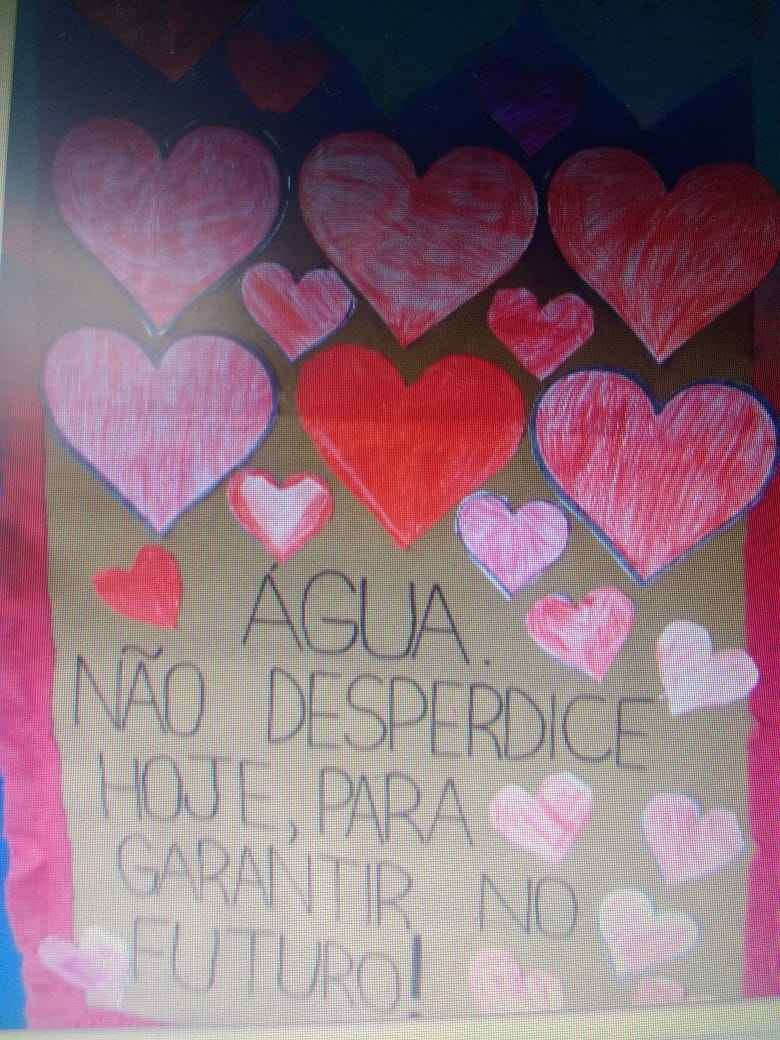 ÁGUA.
NÃO DESPERDICE
HOJE, PARA
GARANTIR NO
FUTURO!